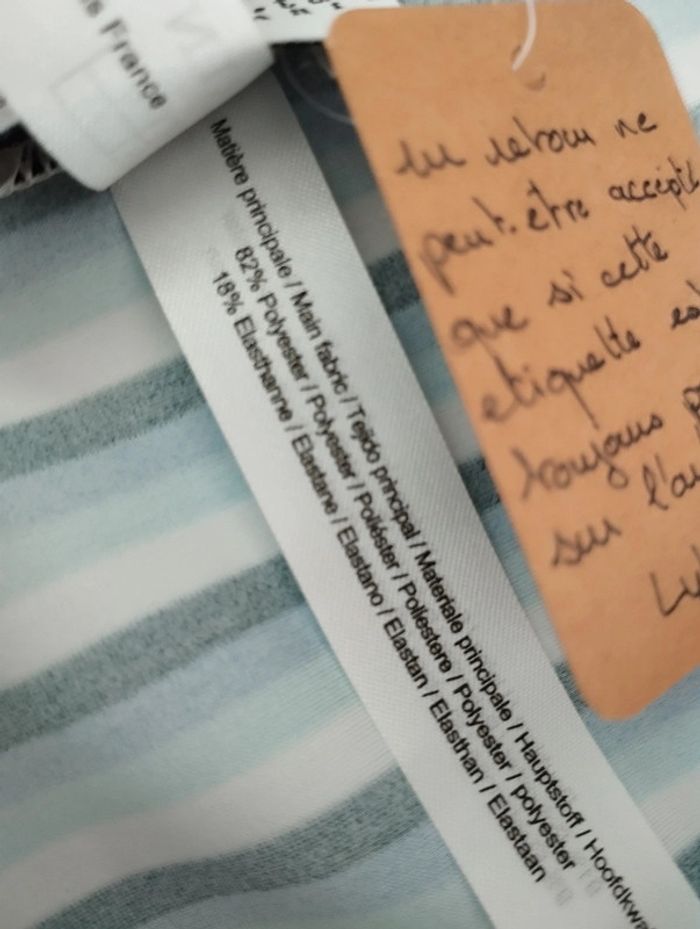 France
Matière principale / Main fabric / Tejido principal / Materiale principale / Hauptstoff /
82% Polyester / Polyester / Poliéster / Poliestere / Polyester / polyester
18% Elasthanne / Elastane / Elastano / Elastan / Elasthan / Elastaan
un retour ne
peut-être
que si cette
etiquette
toujours
sur